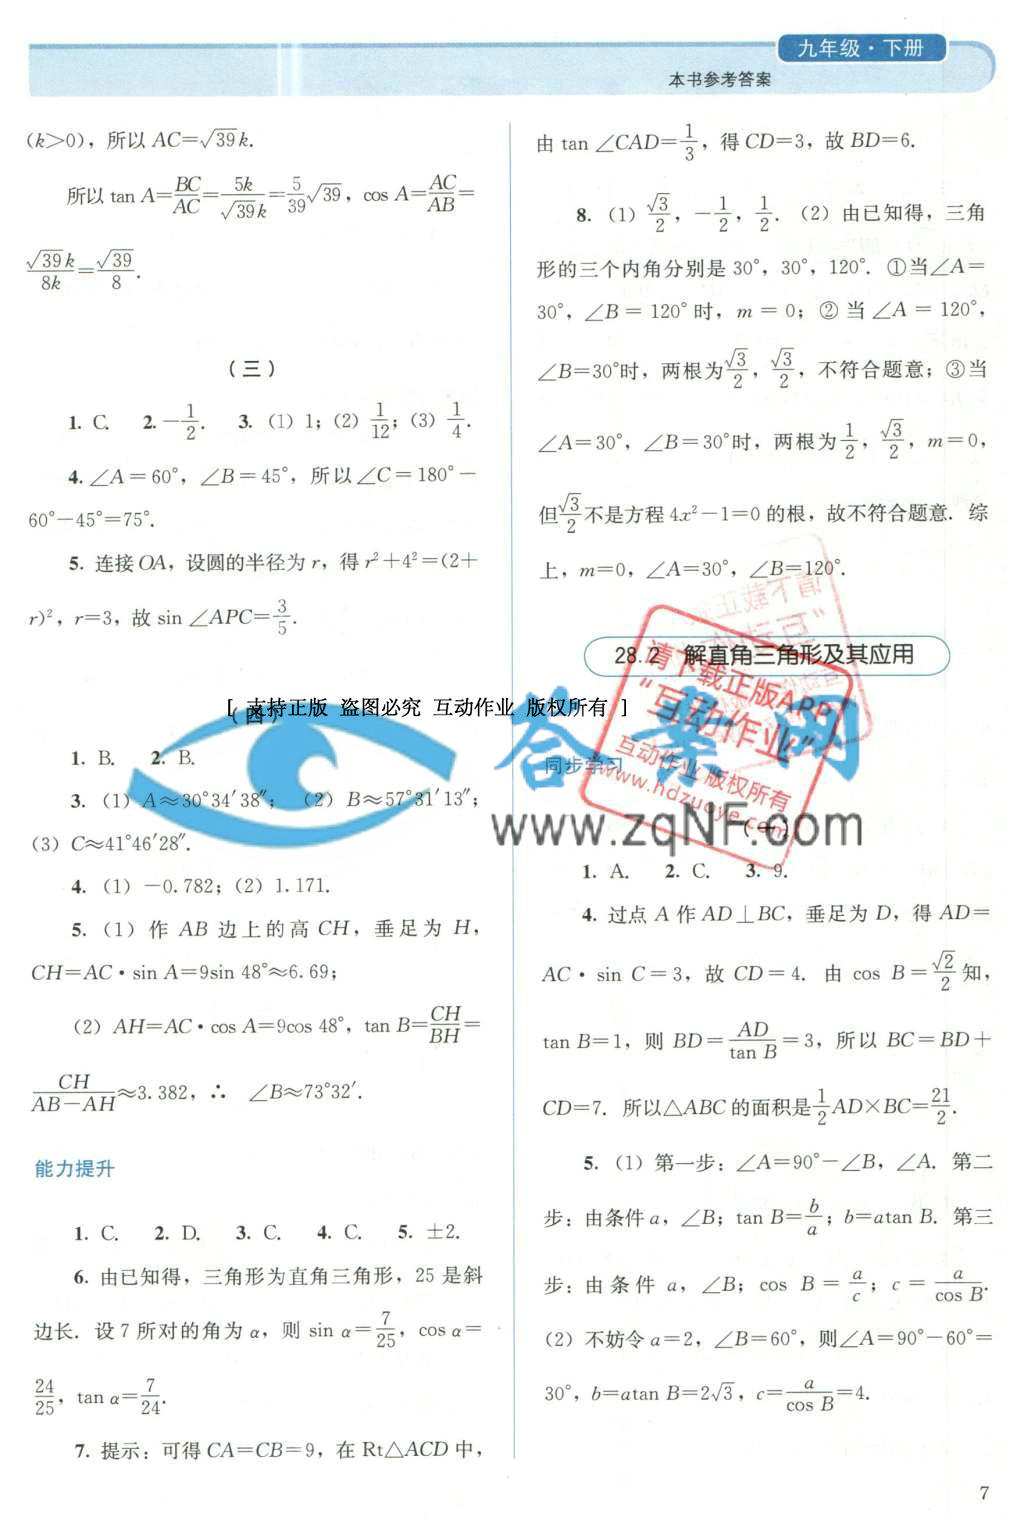 九年级·下册
本书参考答案
(k>0)，所以 AC=√39k.
所以 tan A=BC/AC=5k/(√39k)=5/39√39，cos A=AC/AB=
√39k/8k=√39/8.
(三)
1. C. 2. -1/2. 3. (1) 1；(2) 1/12；(3) 1/4.
4. ∠A=60°，∠B=45°，所以∠C=180°-
60°-45°=75°.
5. 连接OA，设圆的半径为r，得r²+4²=(2+
r)²，r=3，故 sin ∠APC=3/5.
[ 支持正版 盗图必究 互动作业 版权所有 ]
(四)
1. B. 2. B.
3. (1) A≈30°34′38″；(2) B≈57°31′13″；
(3) C≈41°46′28″.
4. (1) -0.782；(2) 1.171.
5. (1) 作 AB 边上的高 CH，垂足为 H，
CH=AC·sin A=9sin 48°≈6.69；
(2) AH=AC·cos A=9cos 48°，tan B=CH/BH=
CH/(AB-AH)≈3.382，∴ ∠B≈73°32′.
能力提升
1. C. 2. D. 3. C. 4. C. 5. ±2.
6. 由已知得，三角形为直角三角形，25 是斜
边长. 设 7 所对的角为 α，则 sin α=7/25，cos α=
24/25，tan α=7/24.
7. 提示：可得 CA=CB=9，在 Rt△ACD 中，
由 tan ∠CAD=1/3，得 CD=3，故 BD=6.
8. (1) √3/2，-1/2，1/2. (2) 由已知得，三角
形的三个内角分别是 30°，30°，120°. ①当∠A=
30°，∠B=120°时，m=0；②当∠A=120°，
∠B=30°时，两根为√3/2，√3/2，不符合题意；③当
∠A=30°，∠B=30°时，两根为1/2，√3/2，m=0，
但√3/2不是方程 4x²-1=0 的根，故不符合题意. 综
上，m=0，∠A=30°，∠B=120°.
28.2 解直角三角形及其应用
请下载正版APP
“互动作业”
互动作业 版权所有
www.hdzuoye.com
答案网
www.zqNF.com
同步学习
(一)
1. A. 2. C. 3. 9.
4. 过点 A 作 AD⊥BC，垂足为 D，得 AD=
AC·sin C=3，故 CD=4. 由 cos B=√2/2知，
tan B=1，则 BD=AD/tan B=3，所以 BC=BD+
CD=7. 所以△ABC 的面积是1/2AD×BC=21/2.
5. (1) 第一步：∠A=90°-∠B，∠A. 第二
步：由条件 a，∠B；tan B=b/a；b=atan B. 第三
步：由条件 a，∠B；cos B=a/c；c=a/cos B.
(2) 不妨令 a=2，∠B=60°，则∠A=90°-60°=
30°，b=atan B=2√3，c=a/cos B=4.
7